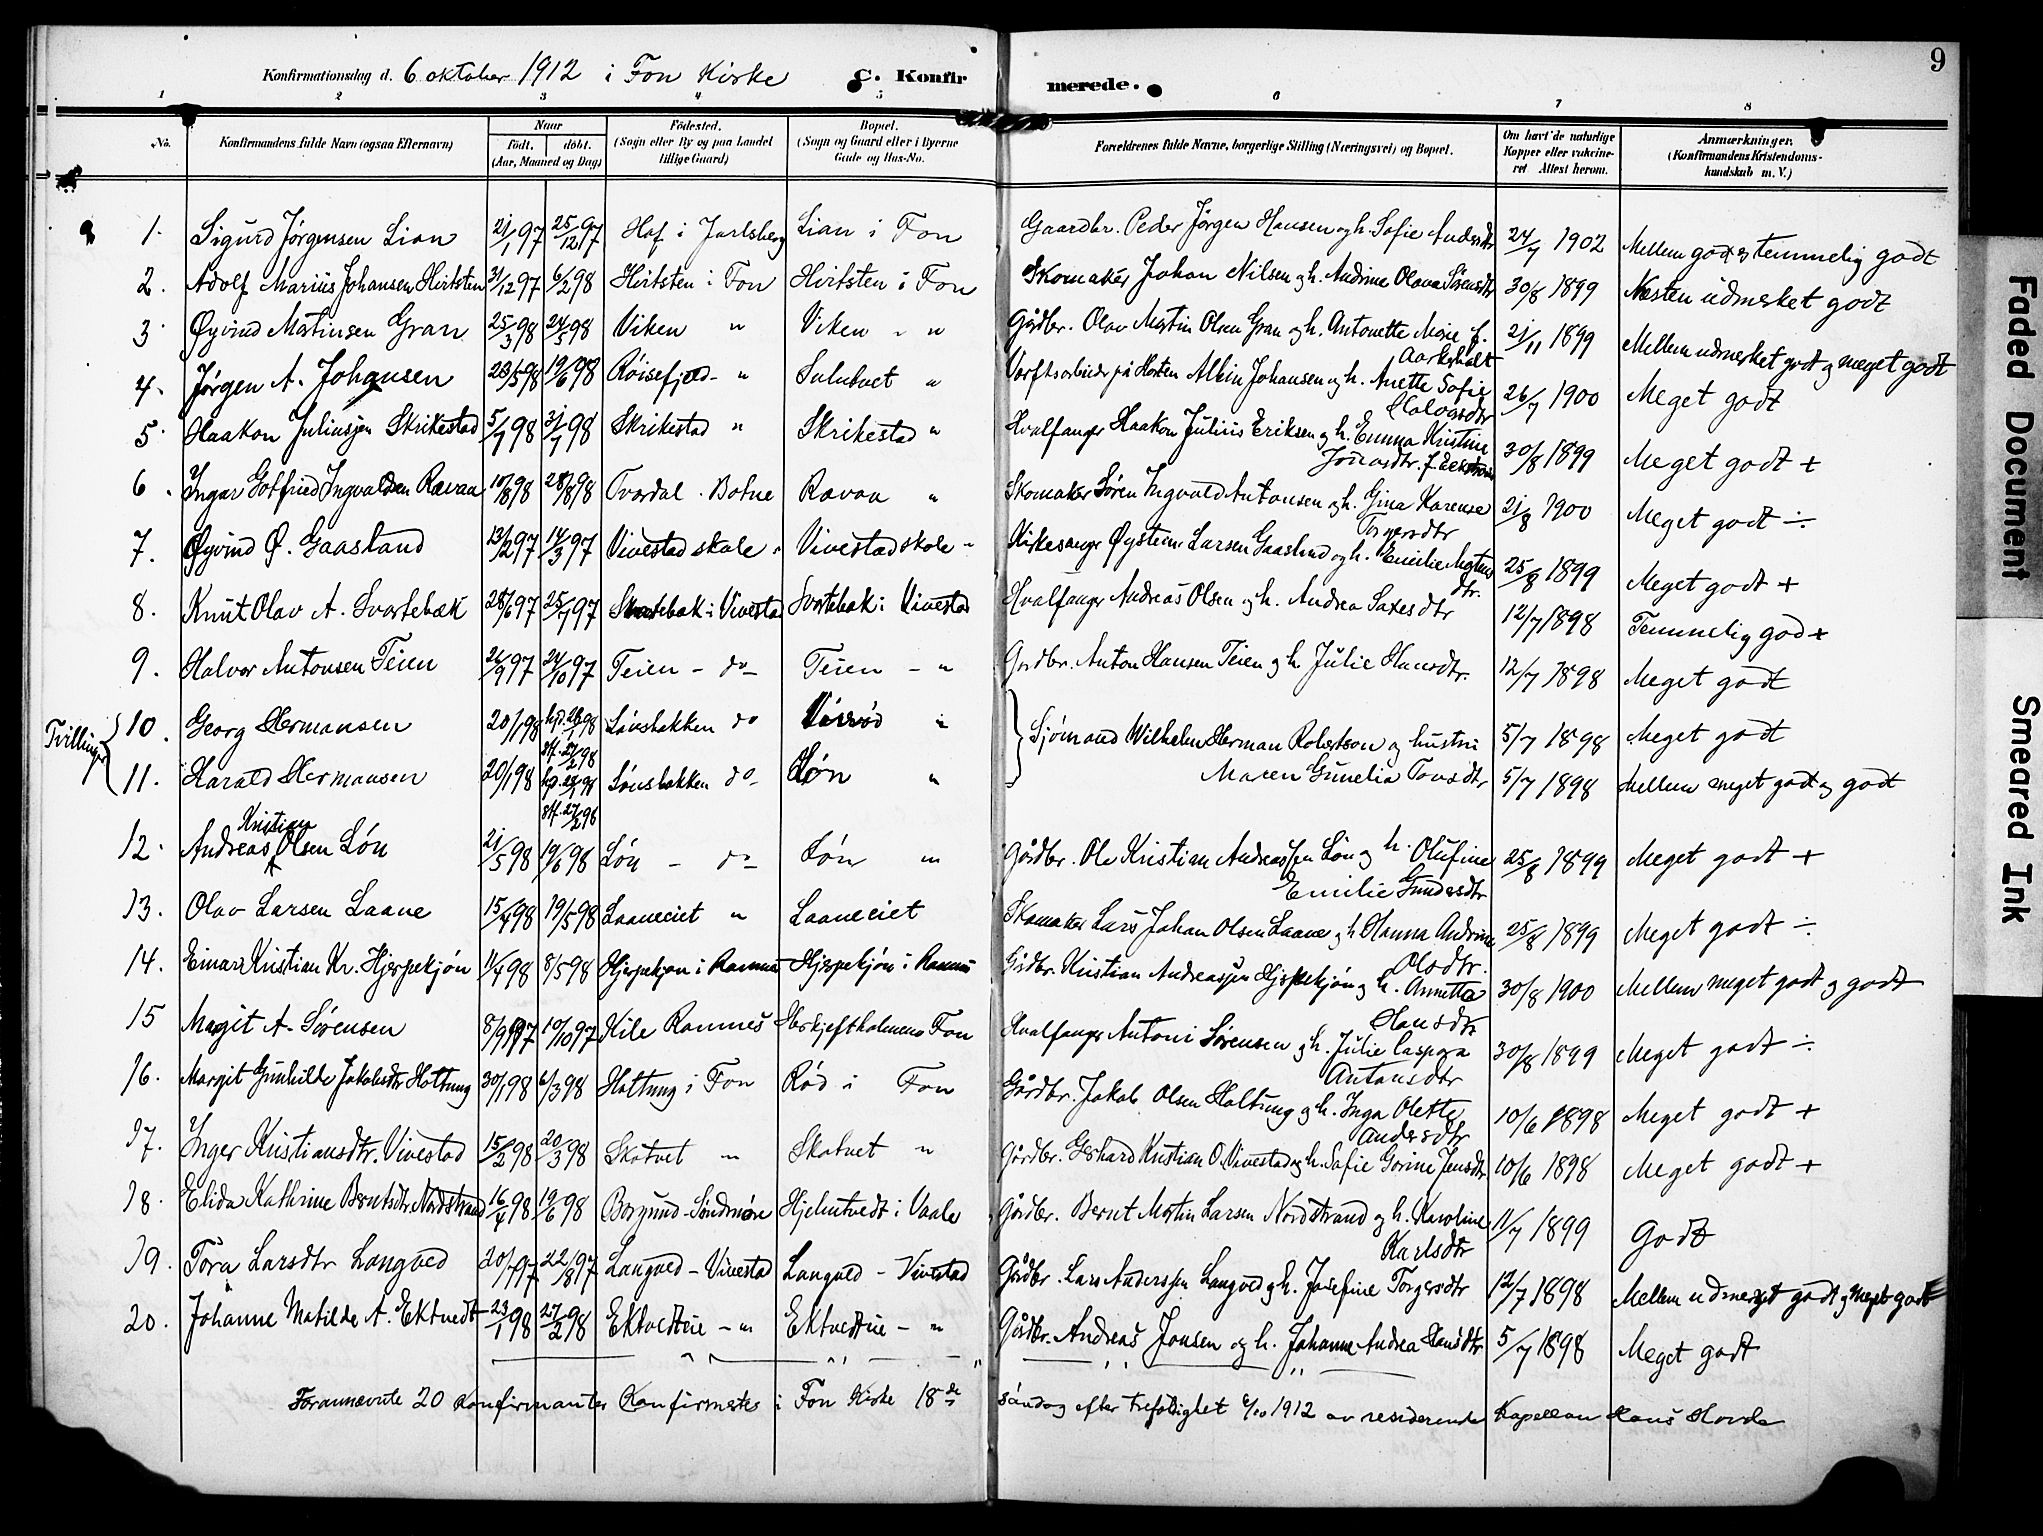 Konfirmationsdag d. 6 oktober 1912 i Fon Kirke C. Konfirmerede. 9
1 2 3 4 5 6 7 8
No. Konfirmandens fulde Navn (ogsaa Efternavn) Naar født. døbt. (Aar, Maaned og Dag) Fødested. (Sogn eller By og paa Landet tillige Gaard) Bopæl. (Sogn og Gaard eller i Byerne Gade og Hus-No. Forældrenes fulde Navne, borgerlige Stilling (Næringsvei) og Bopæl. Om havt de naturlige Kopper eller vakcineret Attest herom. Anmærkninger. (Konfirmandens Kristendomskundskab m. V.)
1. Sigurd Jørgensen Lian 21/1 97 25/12 97 Hof i Jarlsberg Lian i Fon Gaardbr. Peder Jørgen Hansen og h. Sofie Andersdtr 24/7 1902 Mellem godt og temmelig godt
2. Adolf Marius Johansen Hvitsten 31/12 97 6/2 98 Hvitsten i Fon Hvitsten i Fon Skomaker Johan Nilsen og h. Andrine Olava Sørensdtr 30/8 1899 Næsten udmerket godt
3. Øyvind Martinsen Gran 25/3 98 24/5 98 Viken " Viken " " Gårdbr. Olav Martin Olsen Gran og h. Antonette Marie f. Aarholt 21/11 1899 Mellem udmerket godt og meget godt
4. Jørgen A. Johansen 28/5 98 19/6 98 Røisefjæd - " Sulutvet " Verftsarbeider på Horten Albin Johansen og h. Anette Sofie Olavsdtr 26/7 1900 Meget godt
5. Haakon Juliussen Skrikestad 5/1 98 31/1 98 Skrikestad " Skrikestad " Hvalfanger Haakon Julius Eriksen og h. Emma Kristine Jonasdtr. f. 30/8 1899 Meget godt +
6. Ingar Gotfried Ingvaldsen Ravaa 10/8 98 28/8 98 Tvardal - Botne Ravaa " Skomaker Søren Ingvald Antonsen og h. Gina Karense Torgersdtr 21/8 1900 Meget godt ÷
7. Øyvind Ø. Gaasland 13/2 97 14/3 97 Vivestad skole " Vivestad skole " Kirkesanger Øystein Larsen Gaaslund og h. Emilie Mortensdtr. 25/8 1899 Meget godt +
8. Knut Olav A. Svartebæk 28/6 97 25/7 97 Svartebæk i Vivestad Svartebæk i Vivestad Hvalfanger Andreas Olsen og h. Andrea Saxesdtr 12/7 1898 Temmelig godt
9. Halvor Antonsen Teien 26/9 97 24/10 97 Teien - do - Teien - " Grdbr. Anton Hansen Teien og h. Julie Hansdtr. 12/7 1898 Meget godt
Tvillinger
10. Georg Hermansen 20/1 98 hjd. 28/1 98 stf. 27/2 98 Lønsbakken do " Sjømand Wilhelm Herman Robertson og hustru 5/7 1898 Meget godt
11. Harald Hermansen 20/1 98 hjd. 28/1 98 stf. 27/2 98 Lønsbakken do - Løn " Maren Gunelia Torsdtr 5/7 1898 Mellem meget godt og godt
12. Andreas Kristian Olsen Løn 21/5 98 19/6 98 Løn - do - Løn " Gårdbr. Ole Kristian Andreassen Løn og h. Olufine Emilie Gundersdtr 25/8 1899 Meget godt +
13. Olav Larsen Laane 15/4 98 19/5 98 Laaneeiet " Laaneeiet Skomaker Lars Johan Olsen Laane og h. Hanna Andrine Olsdtr. 25/8 1899 Meget godt ÷
14. Einar Kristian Kr. Hjerpekjøn 11/4 98 8/5 98 Hjerpekjøn i Ramnes Hjerpekjøn i Ramnes Gårdbr. Kristian Andreassen Hjerpekjøn og h. Annetta Hansdtr 30/8 1900 Mellem meget godt og godt
15 Margit A. Sørensen 8/9 97 10/10 97 Kile Ramnes Herkjeftholmen Fon Hvalfanger Antoni Sørensen og h. Julie Caspora Antonsdtr 30/8 1899 Meget godt ÷
16. Margit Gunhilde Jakobsdtr Holtung 30/1 98 6/3 98 Holtung i Fon Rød i Fon Gårdbr. Jakob Olsen Holtung og h. Inga Olette Andersdtr 10/6 1898 Meget godt +
17. Inger Kristiansdtr. Vivestad 15/2 98 20/3 98 Skatvet " Skatvet " Gårdbr. Gerhard Kristian O. Vivestad og h. Sofie Gorine Jensdtr. 10/6 1898 Meget godt +
18. Elida Kathrine Berntsdtr Nordstrand 16/4 98 19/6 98 Borgund - Søndmøre Hjelmtvedt i Vaale Gårdbr. Bernt Martin Larsen Nordstrand og h. Karoline Karlsdtr 11/7 1899 Godt
19. Tora Larsdtr Langved 20/7 97 22/8 97 Langved - Vivestad Langved - Vivestad Gårdbr. Lars Anderssen Langved og h. Josefine Torgersdtr 12/7 1898 Mellem udmerket godt og meget godt
20. Johanne Matilde A. Ektvedt 23/1 98 27/2 98 Ektvedteie - " Ektvedteie - " Gårdbr. Andreas Jonsen og h. Johanne Andrea Hansdtr 5/7 1898 Meget godt
Forannævnte 20 Konfirmanter Konfirmertes i Fon Kirke 18de søndag efter trefoldighet 6/10 1912 av residerende Kapellan Hans Hovde
Faded Document
Smeared Ink